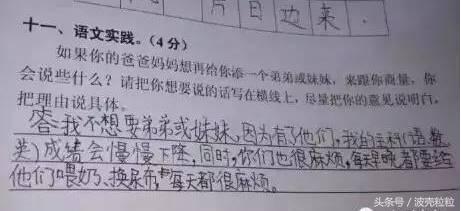 片日边来.
十一、语文实践。(4分)
如果你的爸爸妈妈想再给你添一个弟弟或妹妹,来跟你商量,你
会说些什么?请把你想要说的话写在横线上,尽量把你的意见说明白,
把理由说具体。
答:我不想要弟弟或妹妹,因为有了他们,我的主科(语、数、
英)成绩会慢慢下降,同时,你们也很麻烦,每天早晚都要给
他们喂奶、换尿布,每天都很麻烦。
头条号/波壳粒粒